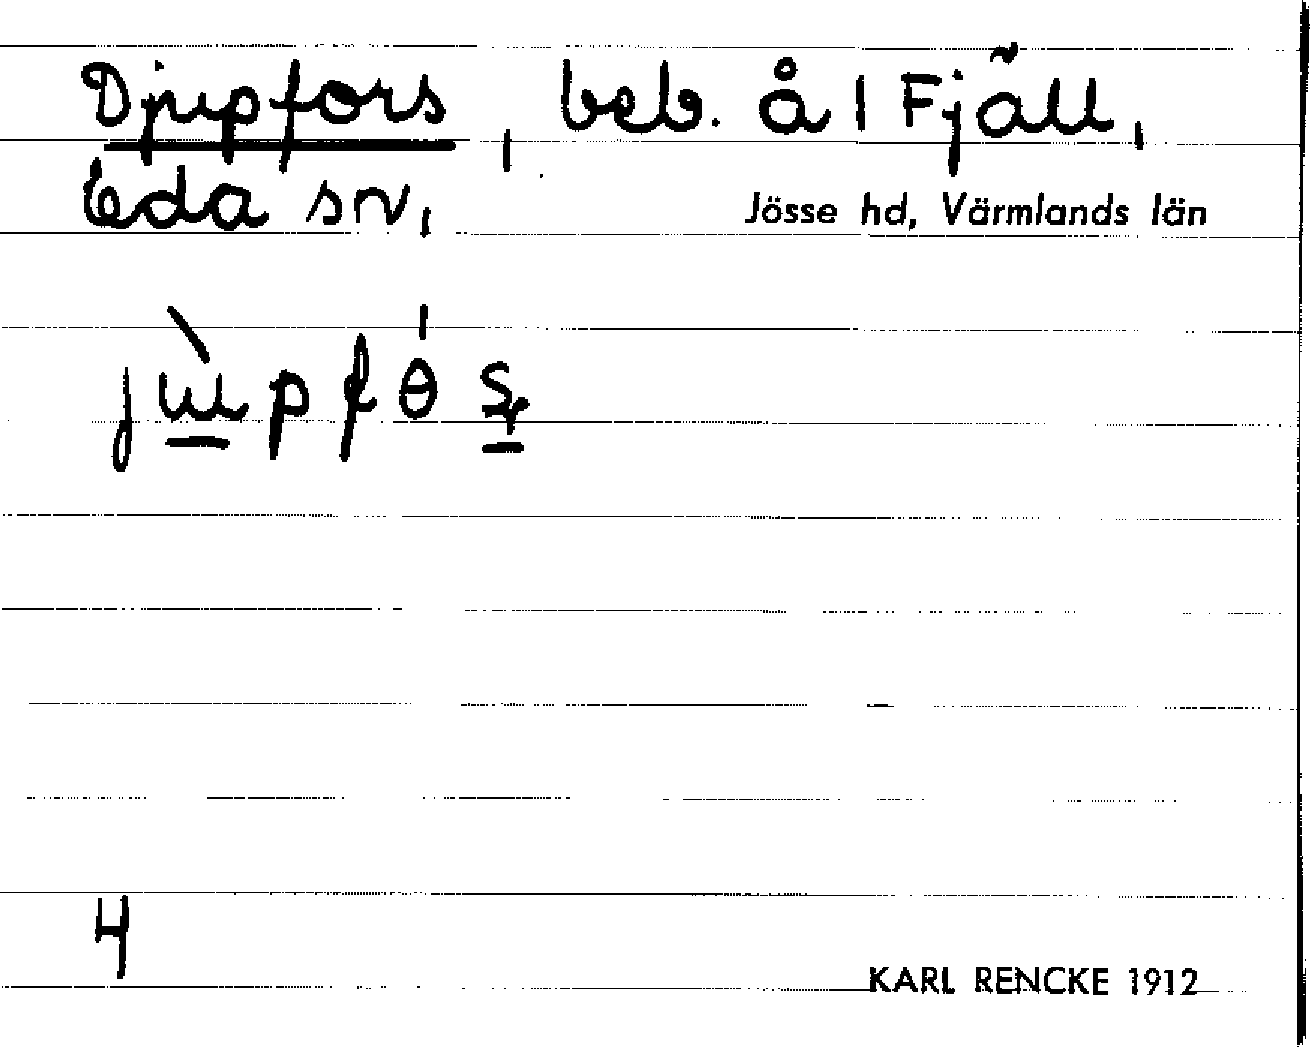 Djupfors, beb. å 1 Fjäll,
Eda sn, Jösse hd, Värmlands län
jùpfɵ́ʂ
4
KARL RENCKE 1912